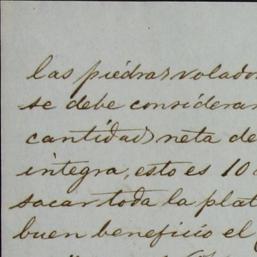 las piedras volado
se debe considerar
cantidad neta de
integra, esto es 10
sacar toda la plat
buen beneficio el